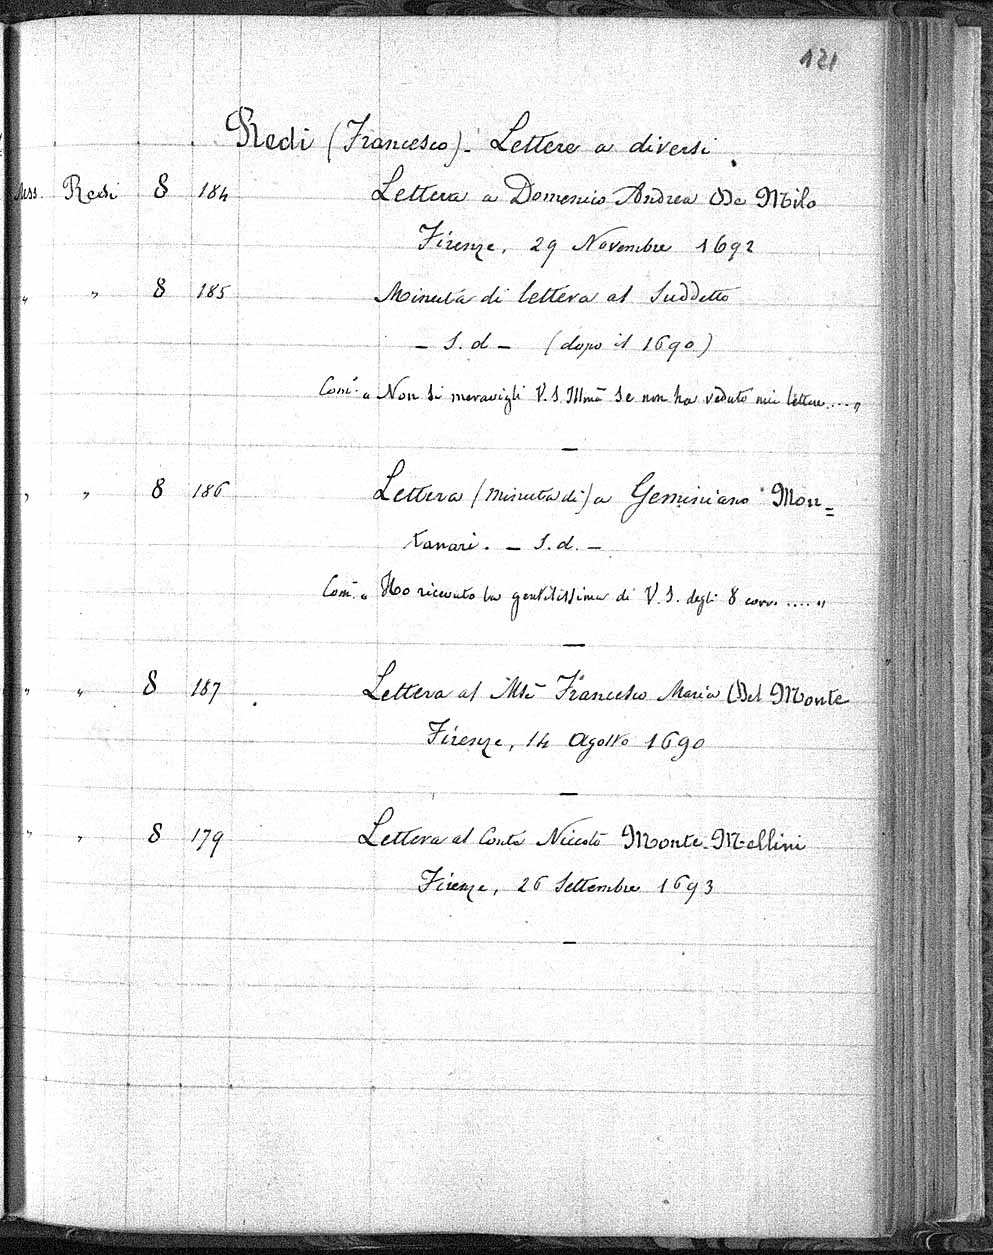 121
Redi (Francesco). Lettere a diversi
Mss. Redi 8 184 Lettera a Domenico Andrea De Milo
Firenze, 29 Novembre 1692
„ „ 8 185 Minuta di lettera al Suddetto
– S. d – (dopo il 1690)
Com.e „ Non si meravigli V. S. Illma se non ha veduto mie lettere .... „
–
„ „ 8 186 Lettera (minuta di) a Geminiano Mon=
tanari. – S. d. –
Com.e „ Ho ricevuto la gentilissima di V. S. degli 8 corr. .... „
–
„ „ 8 187 Lettera al Mse Francesco Maria Del Monte
Firenze, 14 Agosto 1690
–
„ „ 8 179 Lettera al Conte Niccolò Monte-Mellini
Firenze, 26 Settembre 1693
–